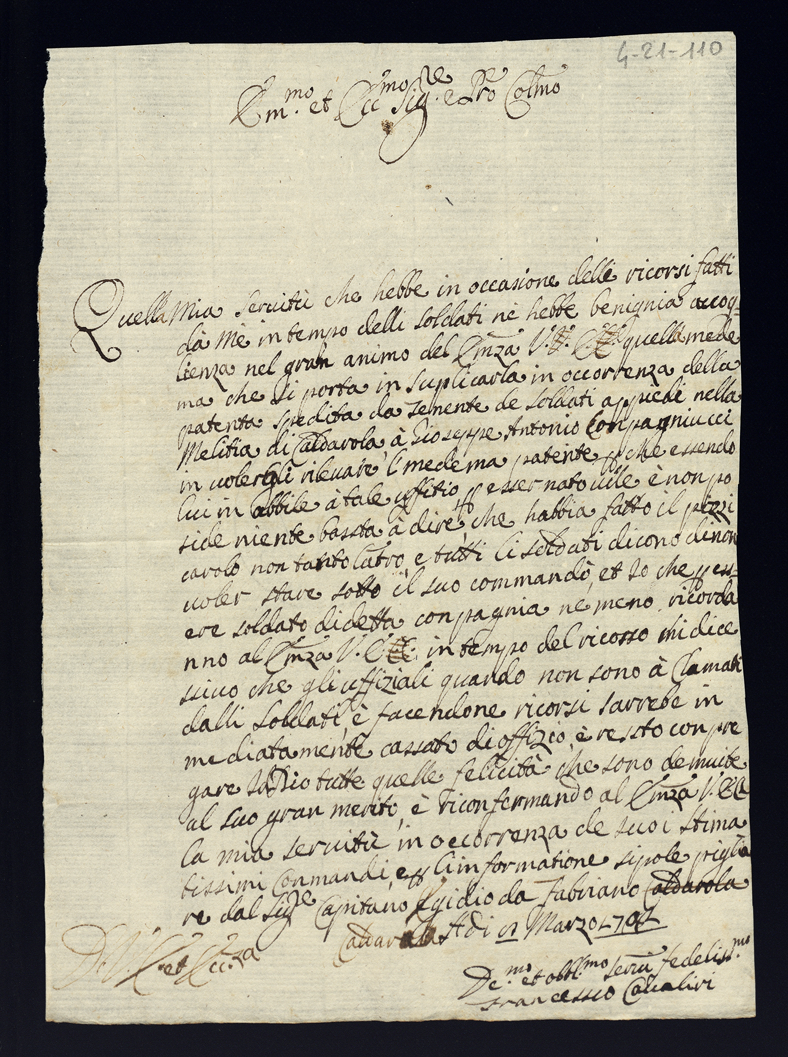 4-21-110
Em.mo et Ecc.mo Sig.re e Pro Colmo
Quella mia servitù che hebbe in occasione delli ricorsi fatti
da me in tempo delli soldati ne hebbe benignia accog-
lienza nel gran animo del Emza V. quella mede
ma che si porta in suplicarla in occorrenza della
patenta spedita da Tenente de soldati appiede nella
Melitia di Caldarola à Gioseppe Antonio Compagniucci
in volergli rilevare l medema patente che essendo
lui in abbile à tale uffitio essernato vile è non po
side niente bassta à dire che habbia fatto il pizzi
carolo non tanto latro, e tutti li soldati dicono di non
voler stare sotto il suo commando, et Io che ess-
ere soldato di detta conpagnia ne meno ricorda
nno al Emza V. in tempo del ricorso mi dice
ssivo che gli uffiziali quando non sono à Clamati
dalli soldati è facendone ricorsi sarrebe in
mediatamente cassato di offizio è ressto con pre
gare Iddio tutte quelle felicità che sono demuite
al suo gran merito, è riconfermando al Emza V.
la mia servitù in occorrenza de suoi stima
tissimi Conmandi, e li informatione si pole piglia
re dal Sig.re Capitano Egidio da Fabriano Caldarola
Caldarola Adi Marzo 170
D. V. E. et Ecc.za
De.mo et obbl.mo servu fedeliss.mo
Francesco Cavaliri